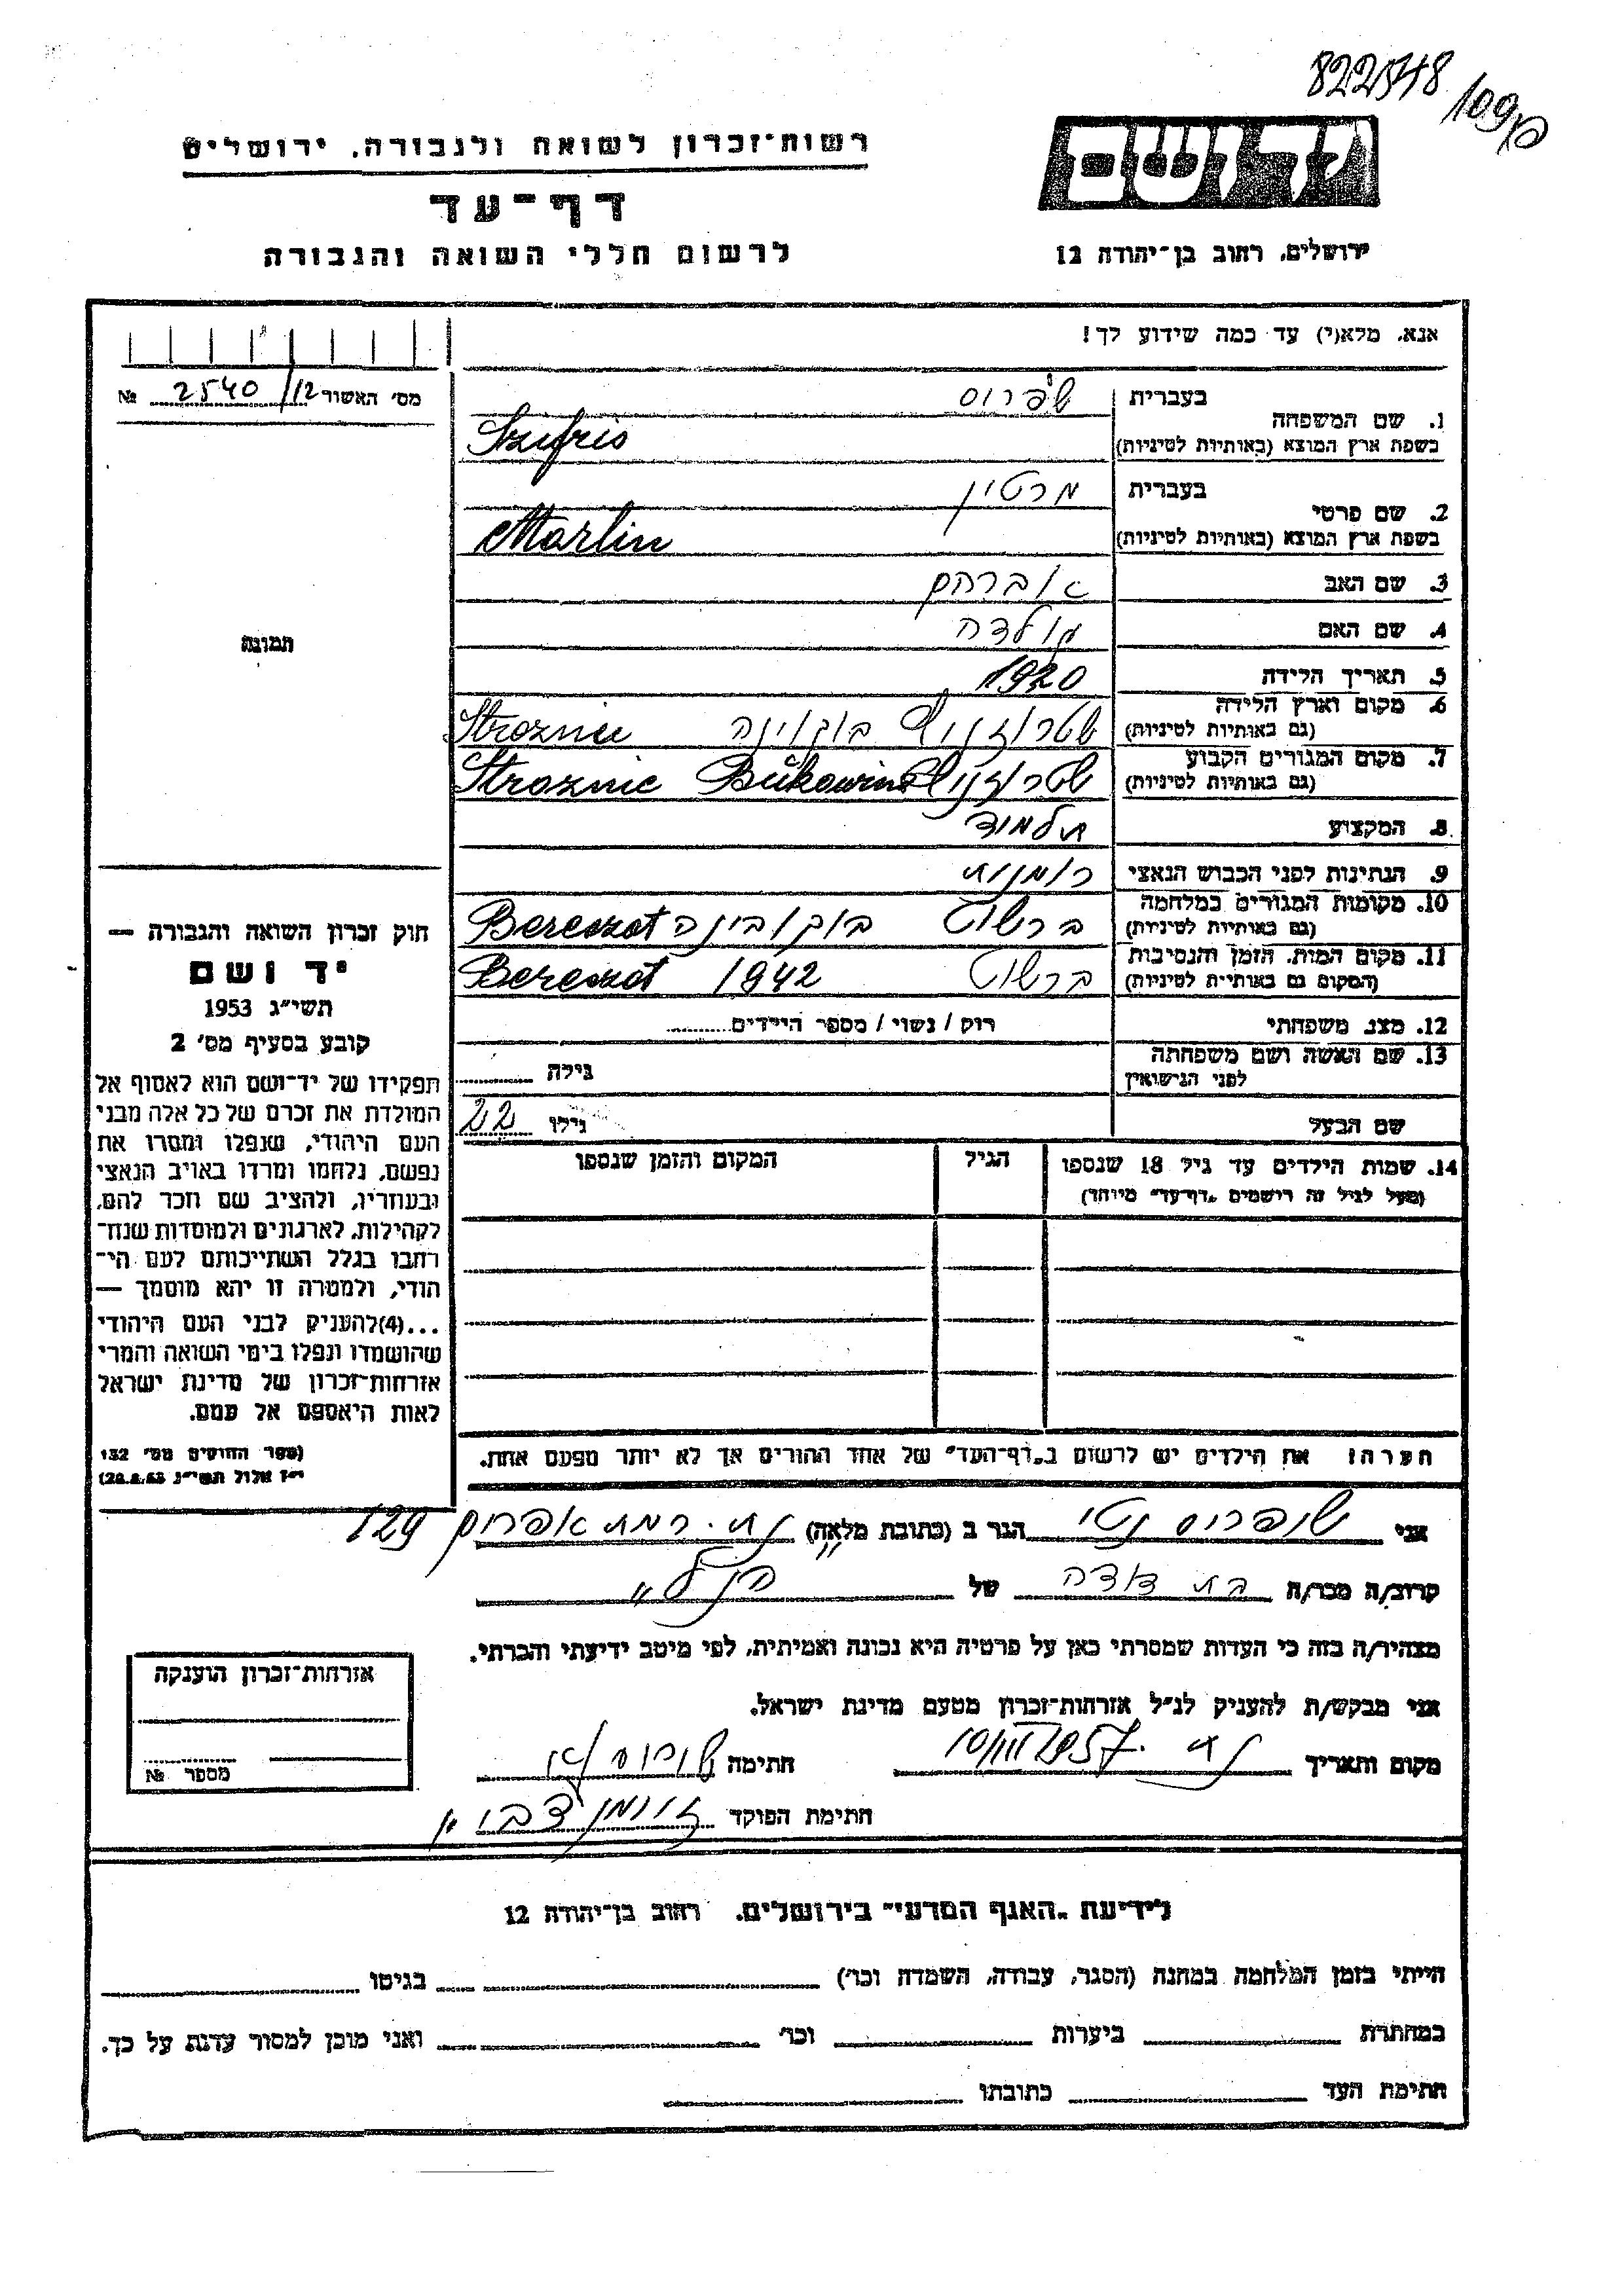 822548
רשות־זכרון לשואה ולגבורה, ירושלים
דף־עד
לרשום חללי השואה והגבורה
ירושלים, רחוב בן־יהודה 12
אנא, מלא(י) עד כמה שידוע לך!
מס' האשור 2540/12 №
1. שם המשפחה
בעברית
בשפת ארץ המוצא (באותיות לטיניות) Szufris
2. שם פרטי
בעברית מרטין
בשפת ארץ המוצא (באותיות לטיניות) Martin
3. שם האב אברהם
4. שם האם גולדה
5. תאריך הלידה 1920
6. מקום וארץ הלידה
(גם באותיות לטיניות) בוקוינה
7. מקום המגורים הקבוע
(גם באותיות לטיניות) Stroznic Bukowina
8. המקצוע תלמיד
9. הנתינות לפני הכבוש הנאצי רומנית
10. מקומות המגורים במלחמה
(גם באותיות לטיניות) ברשוט בוקובינה Bereszot
11. מקום המות, הזמן והנסיבות
(המקום גם באותיות לטיניות) ברשוט 1942 Bereszot
12. מצב משפחתי רוק / נשוי / מספר הילדים
13. שם האשה ושם משפחתה
לפני הנישואין גילה
שם הבעל גילו 22
14. שמות הילדים עד גיל 18 שנספו הגיל המקום והזמן שנספו
(מעל לגיל זה רישמים „דף־עד" מיוחד)
הערה! את הילדים יש לרשום ב„דף־העד" של אחד ההורים אך לא יותר מפעם אחת.
תמונה
חוק זכרון השואה והגבורה —
יד ושם
תשי"ג 1953
קובע בסעיף מס' 2
תפקידו של יד־ושם הוא לאסוף אל
המולדת את זכרם של כל אלה מבני
העם היהודי, שנפלו ומסרו את
נפשם, נלחמו ומרדו באויב הנאצי
ובעוזריו, ולהציב שם וזכר להם,
לקהילות, לארגונים ולמוסדות שנח־
רבו בגלל השתייכותם לעם הי־
הודי, ולמטרה זו יהא מוסמך —
...(4)להעניק לבני העם היהודי
שהושמדו ונפלו בימי השואה והמרי
אזרחות־זכרון של מדינת ישראל
לאות היאספם אל עמם.
(ספר החוקים מס' 132
י"ז אלול תשי"ג 28.8.53)
אני שופריס נטי הגר ב (כתובת מלאה) נת. רמת אפרים 129
קרוב/ה מכר/ה בת דודה של הנ"ל
מצהיר/ה בזה כי העדות שמסרתי כאן על פרטיה היא נכונה ואמיתית, לפי מיטב ידיעתי והכרתי.
אני מבקש/ת להעניק לנ"ל אזרחות־זכרון מטעם מדינת ישראל.
מקום ותאריך חתימה
חתימת הפוקד
אזרחות־זכרון הוענקה
מספר №
לידיעת „האגף המדעי" בירושלים, רחוב בן־יהודה 12
הייתי בזמן המלחמה במחנה (הסגר, עבודה, השמדה וכו') בגיטו
במחתרת ביערות וכו' ואני מוכן למסור עדות על כך.
חתימת העד כתובתו